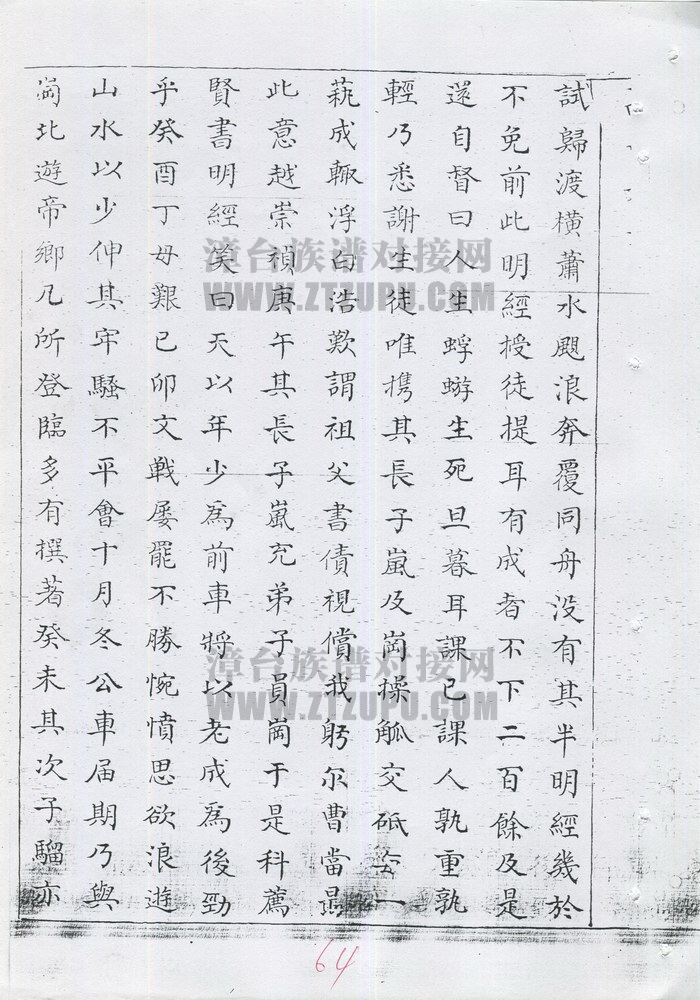 試歸渡橫蕭水颶浪奔覆同舟没有其半明經幾於
不免前此明經授徒提耳有成者不下二百餘及是
遂自督曰人生蜉蝣生死旦暮耳課己課人孰重孰
輕乃悉謝生徒唯携其長子嵐及崗操觚交砥一
藝成輙浮白浩歎謂祖父書債視償我躬尔曹當
此意越崇禎庚午其長子嵐充弟子員崗于是科薦
賢書明經笑曰天以年少爲前車將以老成爲後勁
乎癸酉丁母艱己卯文戰屡罷不勝惋憤思欲浪遊
山水以少伸其牢騷不平會十月冬公車届期乃與
崗北遊帝鄉凡所登臨多有撰著癸未其次子騮亦
漳台族谱对接网
WWW.ZTZUPU.COM
漳台族谱对接网
WWW.ZTZUPU.COM
64